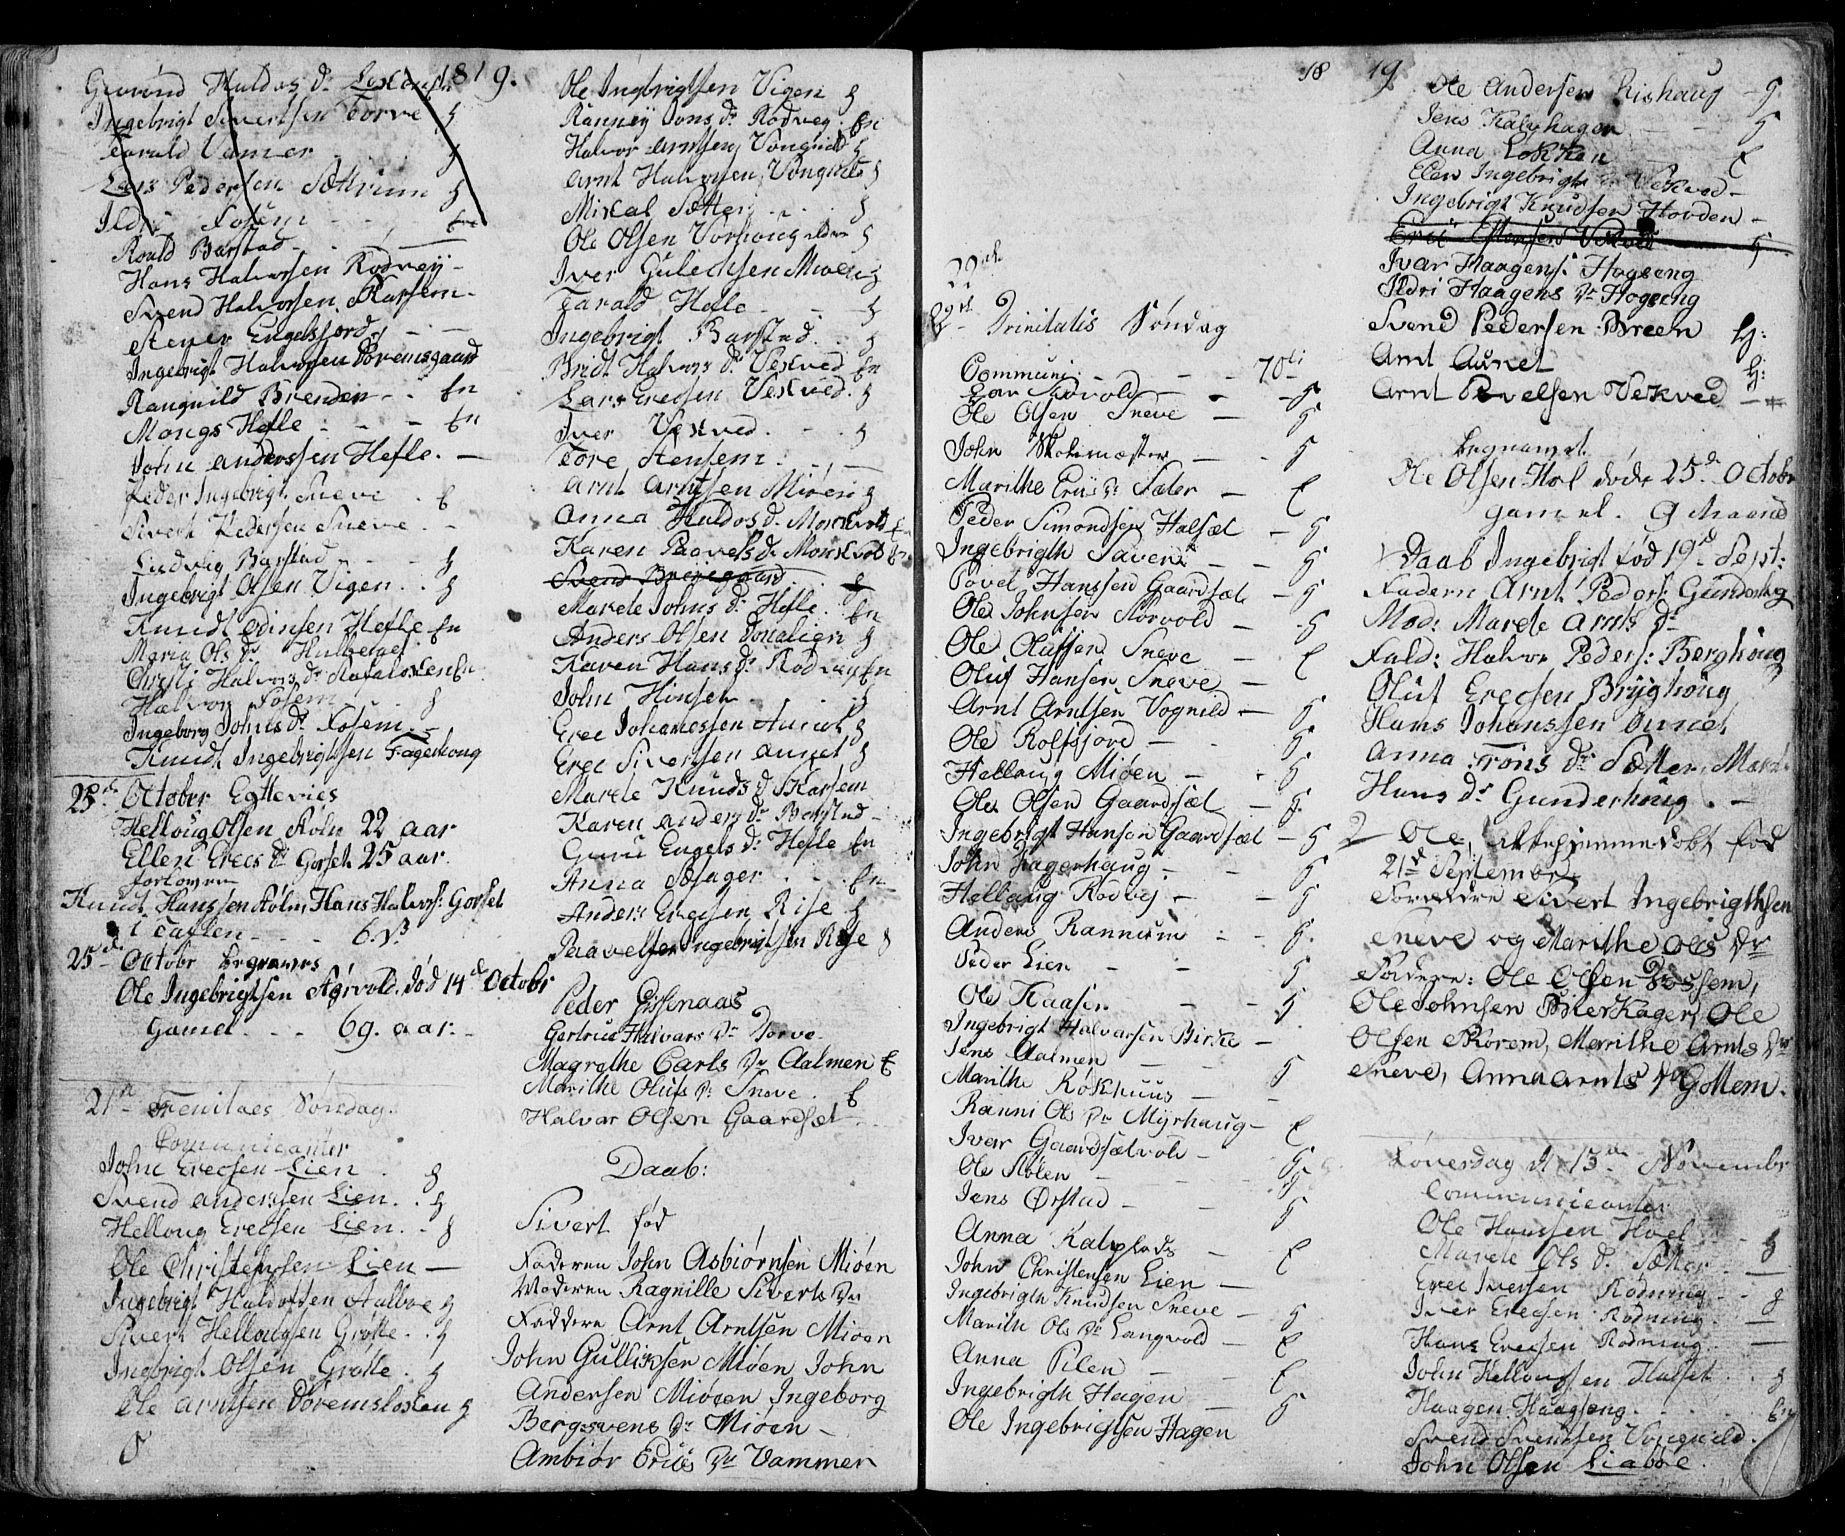 1819.
Guround Haldos dr
Ingebrigt Sivertsen Torve
Tarald Vamer
Lars Pedersen Sættrum
Ildri Fosem
Roald Barstad
Hans Halvorsen Rodvey
Svend Halvorsen Skarsem
Stener Engelsjord
Ingebrigt Halvorsen Dovremsgaard
Rangnild Brenden En
Mongs Hefle En
John anderssen Hefle
Peder Ingebrigt Sneve
Sivert Pedersen Sneve
Ludvig Barstad
Ingebrigt Olsen Vigen
Knudt Odinsen Hefle En
Maria Ols dr Hulberget
Christi Halvors dr
Halvor Fosem
Ingeborg Johns dr Fosem
Knudt Ingebrigtsen Fagerhoug
25de October Egtevies
Helloug Olsen Aoln 22 aar
Ellen Erecs dr Gorset 25 aar
forlovere
Knudt Hanssen Aoln, Hans Halvors: Gorset
i Taflen 6
25de Octobr begraves
Ole Ingebrigtsen Storvold, død 14de Octobr
Gamel 69. aar.
21de Trenitaes Søndag
Comunicanter
John Erecsen Lien
Svend anderssen Lien
Helloug Erecsen Lien
Ole Christensen Lien
Ingebrigt Haldossen Aalboe
Sivert Hellougsen Grøtte
Ingebrigt Olsen Grøtte
Ole arntsen Dovremsløsken
Ole Ingbrigtsen Vigen
Ranney Jons dr Rodvey En
Halvor arntsen Vongnild
arnt Halvorsen Vongnild
Mikal Sætter
Ole Olsen Vorhoug
Iver Gulecksen Mioen
Tarald Hefle
Ingebrigt Barstad
Bridt Halvors dr Vekved En
Lars Erecsen Vekved
Iver Vekved
Tore Stensem
Arnt arntsen Mioen
Anna Haldos dr
Karen Paavels dr
Svend
Marete Johns dr Hefle En
Anders Olsen
Karen Hans dr Rodvey En
John Hinset
Erec Johanessen Aunet
Erec Siversen aunet
Marete Knuds d Skarsem
Karen anders dr Barstad
Guru Engels dr Hefle En
Anna Sæhager En
Anders Erecsen Rise
Paavelser Ingebrigtsen Rise
Peder Gissenaas
Gertrue Halvars Dr Torve
Magrethe Carls Dr Aalmen E
Marithe Olufs Dr Sneve E
Halvor Olsen Gaardsæt
Daab:
Sivert fød
Faderen John Asbiørnsen Mioen
Moderen Ragnille Siverts Dr
Faddere Arnt Arntsen Mioen
John Gullixsen Mioen John
Andersen Mioen Ingeborg
Bergsvens Dr Mioen
Ambiør Eriks Dr Vammer
18 19
22de
Trinitatis Søndag
Communi: 70ti
Storvold
Ole Olsen Sneve
John Skolemester
Marithe Eriks Dr Sæter E
Peder Simondsen Halsæt
Ingebrigth Saveni
Povel Hanssen Gaardsæt
Ole Johnsen Storvold
Ole Olufsen Sneve E
Oluf Hansen Sneve
Arnt Arntsen Vognild
Ole Rolfsjord
Hellaug Mioen
Ole Olsen Gaardsæt
Ingebrigt Hansen Gaardsæt
John Fagerhaug
Hellaug Rodvey
Anders Rannum
Peder Lien
Ole Kaasen
Ingebrigt Halvarsen Birke
Jens Aalmen
Marithe Røkhuus
Ranni Ols Dr Myrhaug E
Ivar Gaardsætvole
Ole Stølen
Jens Ørstad
Anna Kalvhads E
John Christensen Lien
Ingebrigth Knudsen Sneve
Marith Ols Dr Langvold E
Anna Pilen E
Ingebrigth Hagen
Ole Ingebrigtsen Hagen
Ole Andersen Rishaug
Jens Kalvhagen
Anna Løkken E
Elen Ingebrigts Dr Vekved
Ingebrigt Knudsen Hovden
Eric Stensen Vekved
Ivar Haagens: Hogseng
Ildri Haagens Dr Hogseng
Svend Pedersen Breen
Arnt Aunet
Arnt Povelsen Vekved
begravet
Ole Olsen Hol døde 25de Octobr
gamel. 9 Maaned
Daab Ingebrigt fød 19de Sept:
Fadern Arnt Peders: Gunderhug
Mod: Marete Arnts Dr
Fald: Halvor Peders: Berghoug
Oluf Erecsen Bryghoug
Hans Johanssen Aunet
Anna Trons dr Sætter, Marit
Hans dr Gunderhoug
2 Ole, hiemmedøbt fød
21de September
Foreldre Sivert Ingebrigthsen
Sneve og Marithe Ols Dr
Faddere: Ole Olsen Fossem,
Ole Johnsen Bierkager, Ole
Olsen Skorem, Marithe Arnts Dr
Sneve, Anna Arnts Dr Gottem.
Løverdag d 13de November
Communicanter
Ole Hanssen Hoel
Marete Ols d. Sætter
Erec Iversen Rødning
Iver Erecsen Rødning
Hans Erecsen Rødning
John Hellougssen Halset
Haagen Haagseng En
Svend Svendsen Vongnild
John Olsen Liaboe